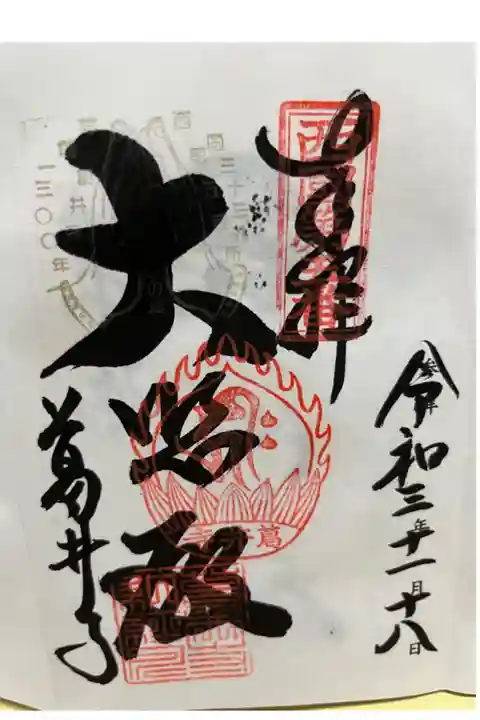 参拝
令和三年十一月十八日
奉拝
西国第五番
大悲殿
葛井寺
西国三十三所
一三〇〇年
葛井寺